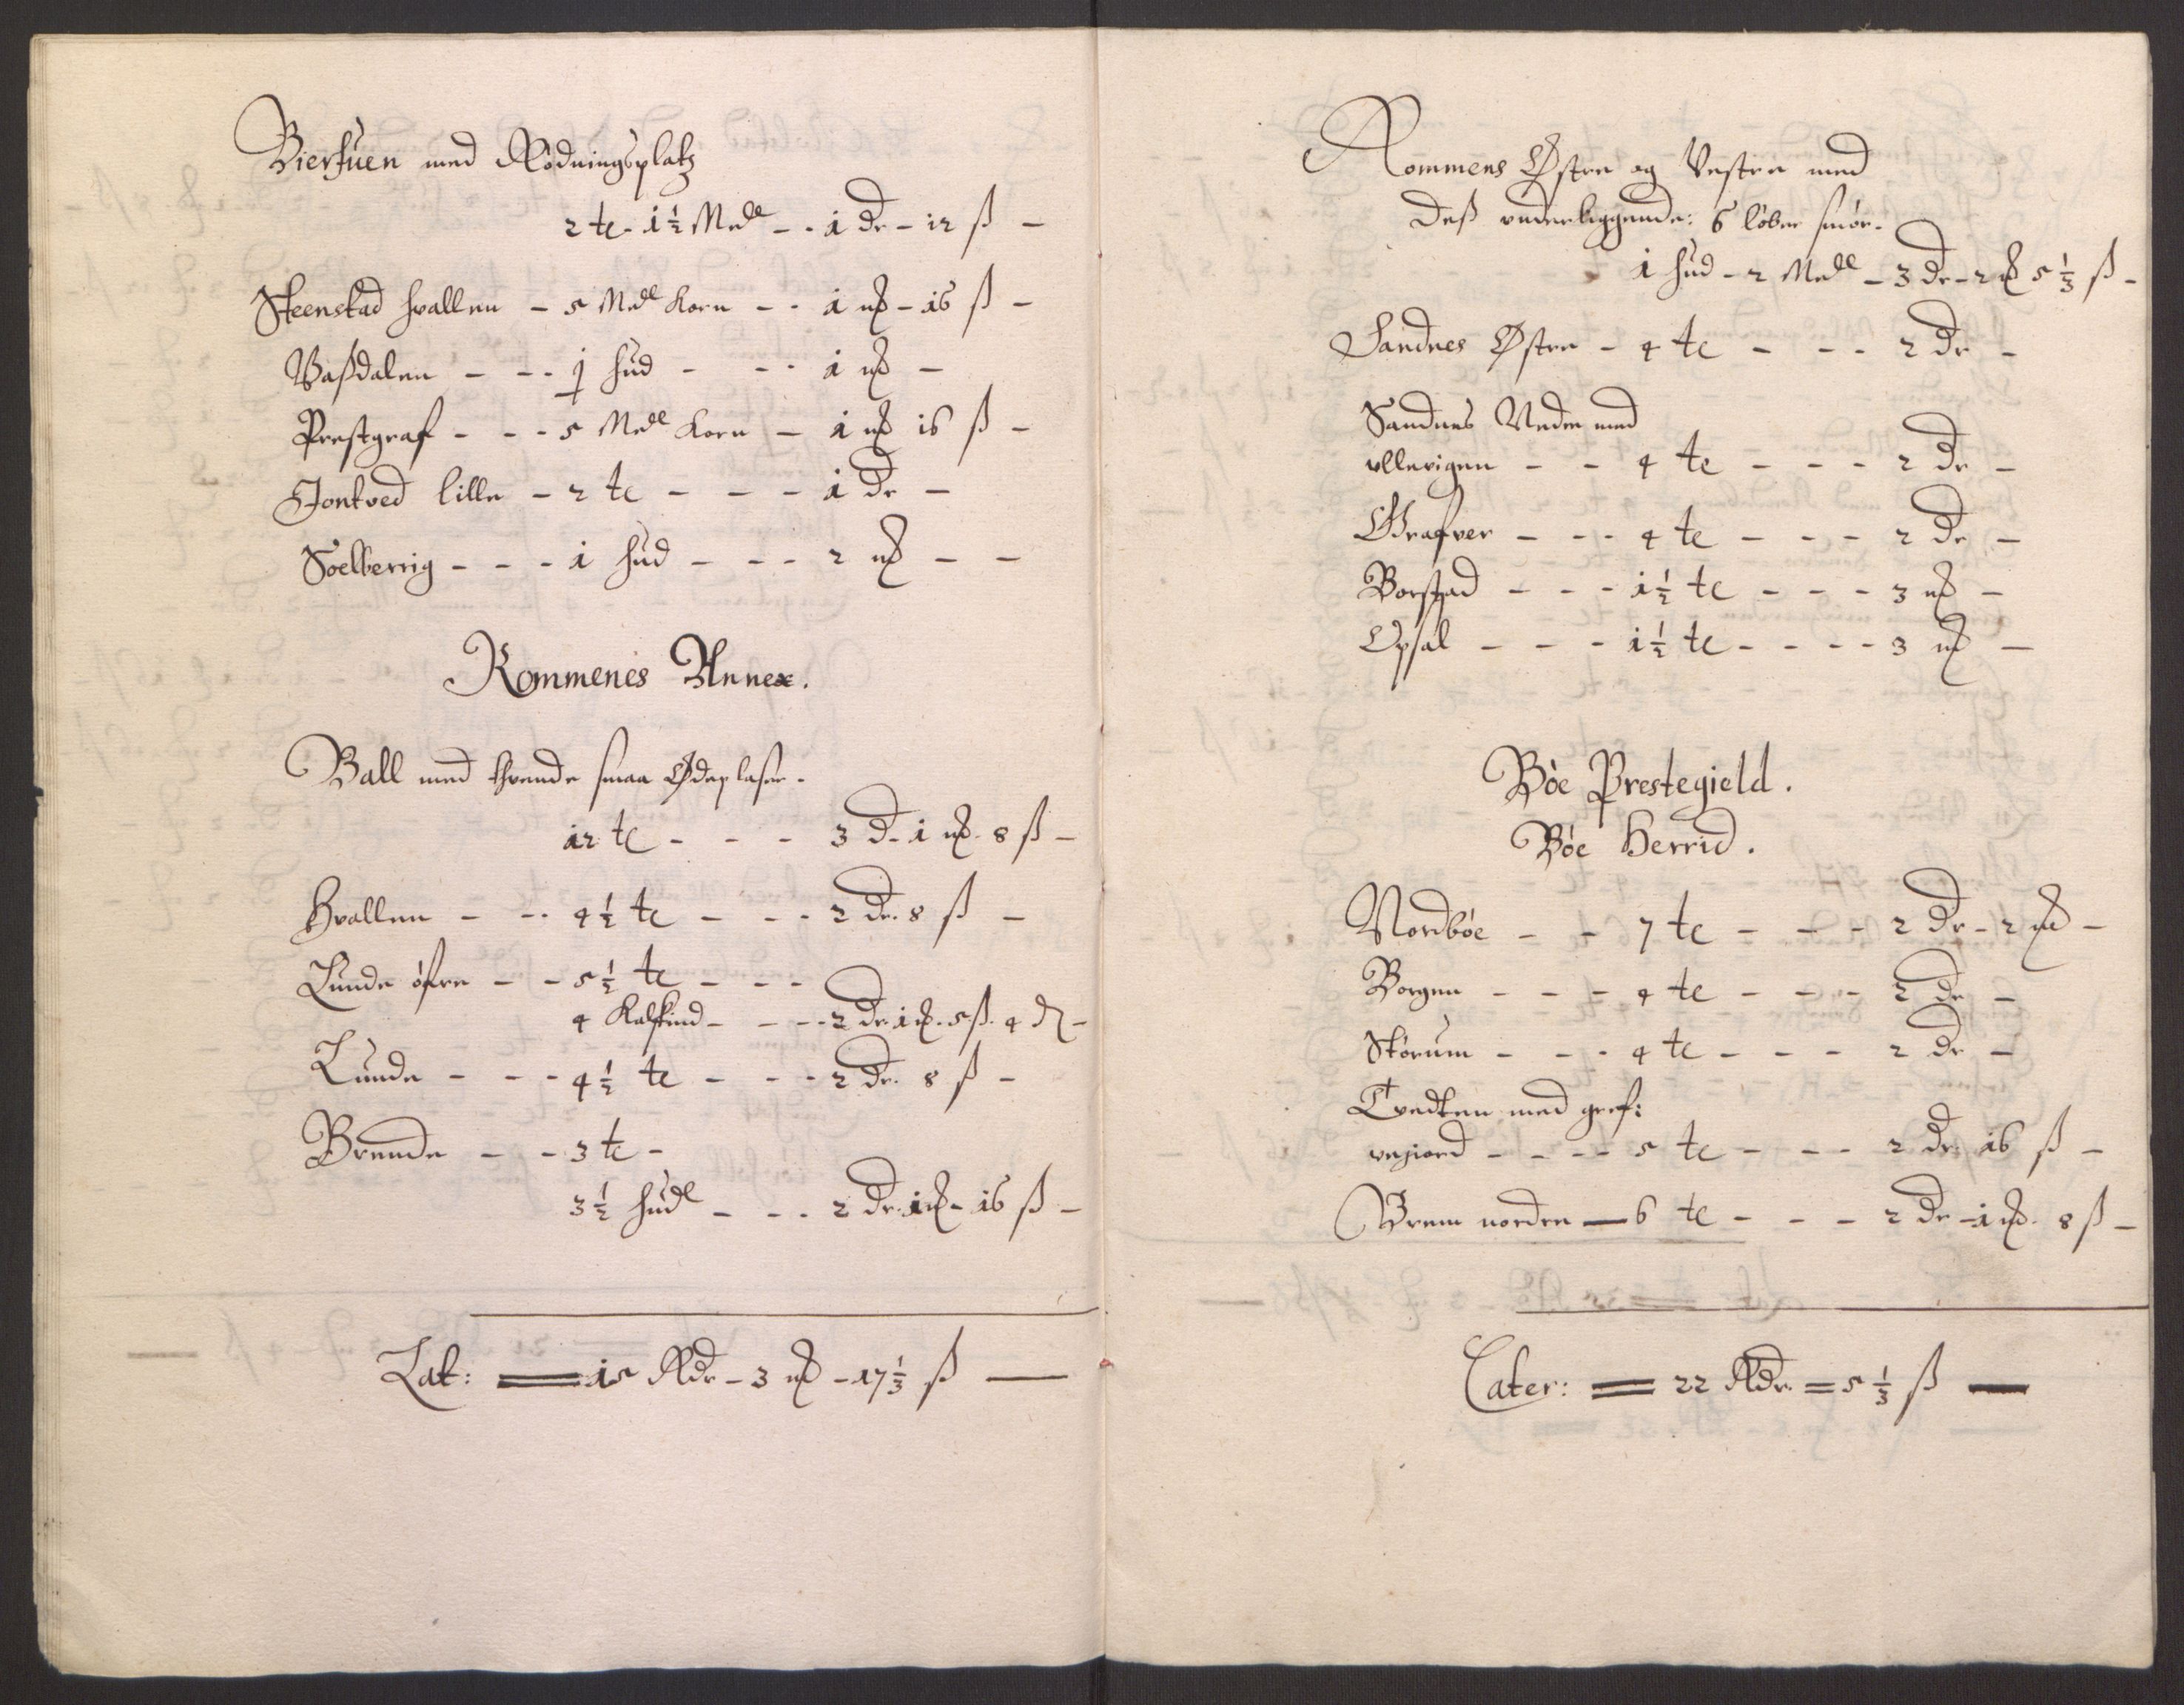 Bierfuen med Rødningsplatz
2 te - 1½ Mell - - 1 dr - 12 ß -
Steenstad hvallen - 5 Mell Korn - - 1 mk - 16 ß -
Vaßdalen - - - j hud - - - 1 mk -
Prestgraf - - - 5 Mell Korn - 1 mk 16 ß -
Jontved lille - 2 te - - - 1 dr -
Soelberrig - - - 1 hud - - - 2 mk - -
Rommenes Annex.
Ball med thvende smaa Ødeplaser.
12 te - - - 3 d. 1 mk. 8 ß -
Hvallen - - - 4½ te - - - 2 dr. 8 ß -
Lunde øfre - - 5½ te - - -
4 Kalfskind - - - 2 dr. 1 mk. 5 ß. 4 d -
Lunde - - - 4½ te - - - 2 dr. 8 ß -
Brende - - 3 te -
3½ hudl - - - 2 dr. 1 mk - 16 ß -
Lat: = 15 Rdr - 3 mk - 17⅓ ß -
Rommens Østre og Vestre med
deß underliggende: 6 løber smør.
1 hud - 2 Mell - 3 dr - 2 mk 5⅓ ß -
Sandnes Østre - 4 te - - - 2 dr -
Sandnes Nedre med
ullevigen - - 4 te - - - 2 dr -
Grafver - - - 4 te - - - 2 dr -
Borstad - - - 1½ te - - - 3 mk -
Opsal - - - 1½ te - - - - 3 mk -
Bøe Prestegield.
Bøe Herrid.
Nordbøe - - 7 te - - - 2 dr - 2 mk -
Borgen - - - 4 te - - - 2 dr -
Størum - - - 4 te - - - 2 dr -
Tvedten med gref:
vejiord - - - - 5 te - - - 2 dr. 16 ß -
Brem nordre - 6 te - - - 2 dr - 1 mk. 8 ß -
Later: = 22 Rdr. = 5⅓ ß -